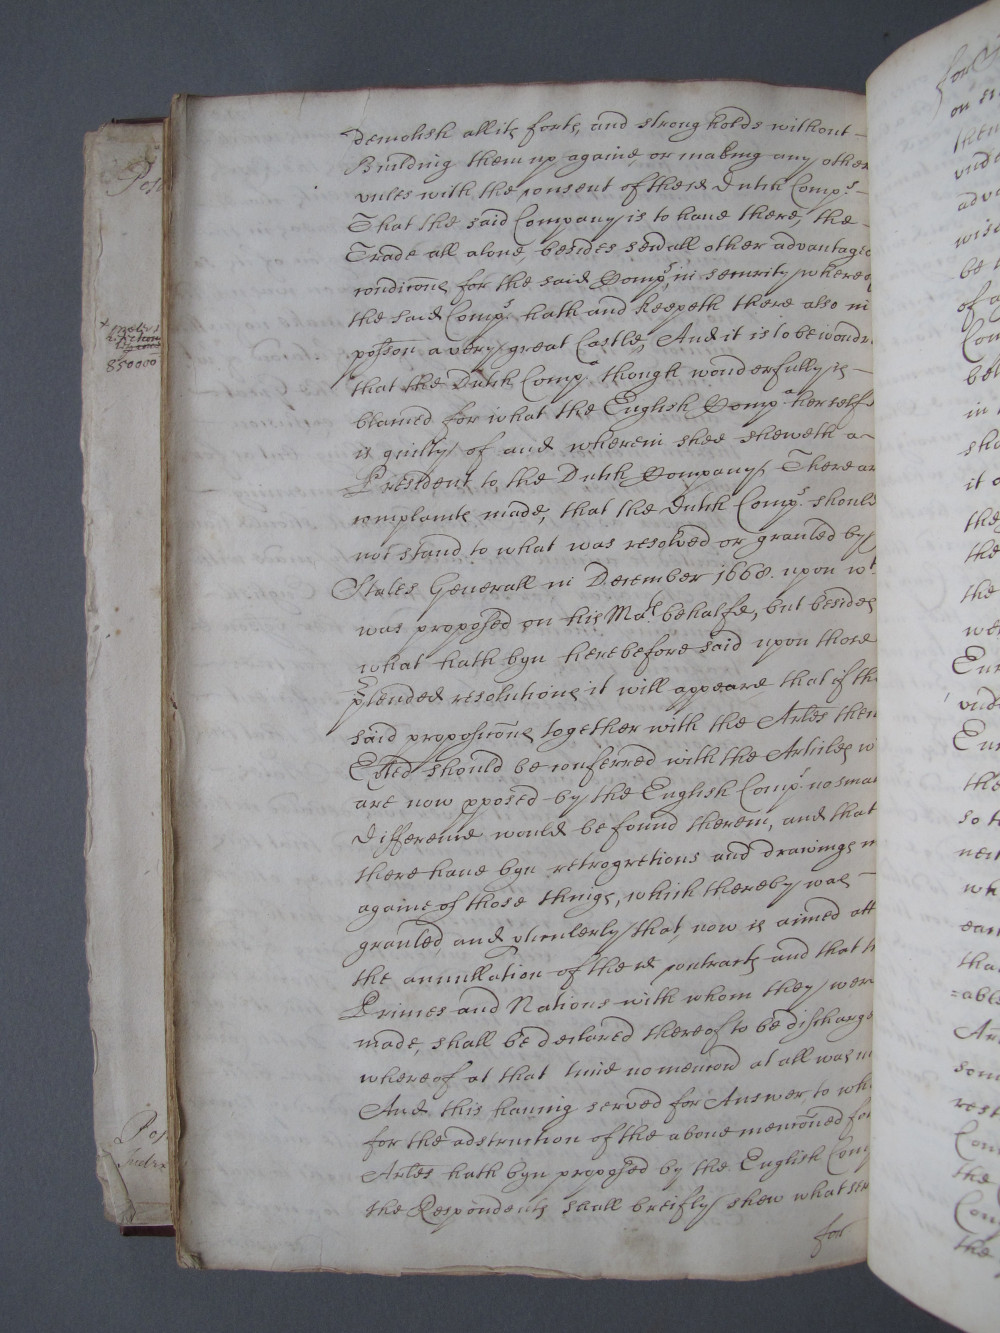 demolish all its forts, and strong holds without
Building them up againe, or making any other
unles with the consent of these Dutch Comp.ᵃ
That the said Company is to have there, the
Trade all alone, besides sevall other advantage
condicons for the said Comp.ᵃ, in security where
the said Comp.ᵃ hath and keepeth there also in
possõn a very great Castle, And it is to be wond
that the Dutch Comp.ᵃ though wonderfully is
blamed for what the English Comp.ᵃ herself
is guilty of and wherein shee sheweth a
President to the Dutch Company. There ar
complaints made, that the Dutch Comp.ᵃ should
not stand to what was resolved or granted by
States Generall in December 1668. upon wᵗ
was proposed on his Maᵗˢ behalfe, but besides
what hath byn herebefore said upon those
ptended resolutions it will appeare that if the
said proposicõns together with the Artles then
Ested should be conferred with the Articles w
are now pposed by the English Comp.ᵃ no smal
difference would be found therein, and that
there have byn retrogretions and drawings
againe of those things, which thereby was
granted, and pticulerly that, now is aimed att
the annullation of these contracts and that
Princes and Nations with whom they were
made, shall be declared thereof to be discharge
whereof at that time no mencon at all was
And this having served for Answer, to
for the adstruction of the above mencõned
Artles hath byn proposed by the English Com
the Respondents shall breifly shew what
for
850000
Pos
Pos
for
on
be
of a
Com
bel
in
sha
it o
they
the
the
Eur
Eur
the
so
wh
that
=able
Art
some
rest
Com
the
Com
the